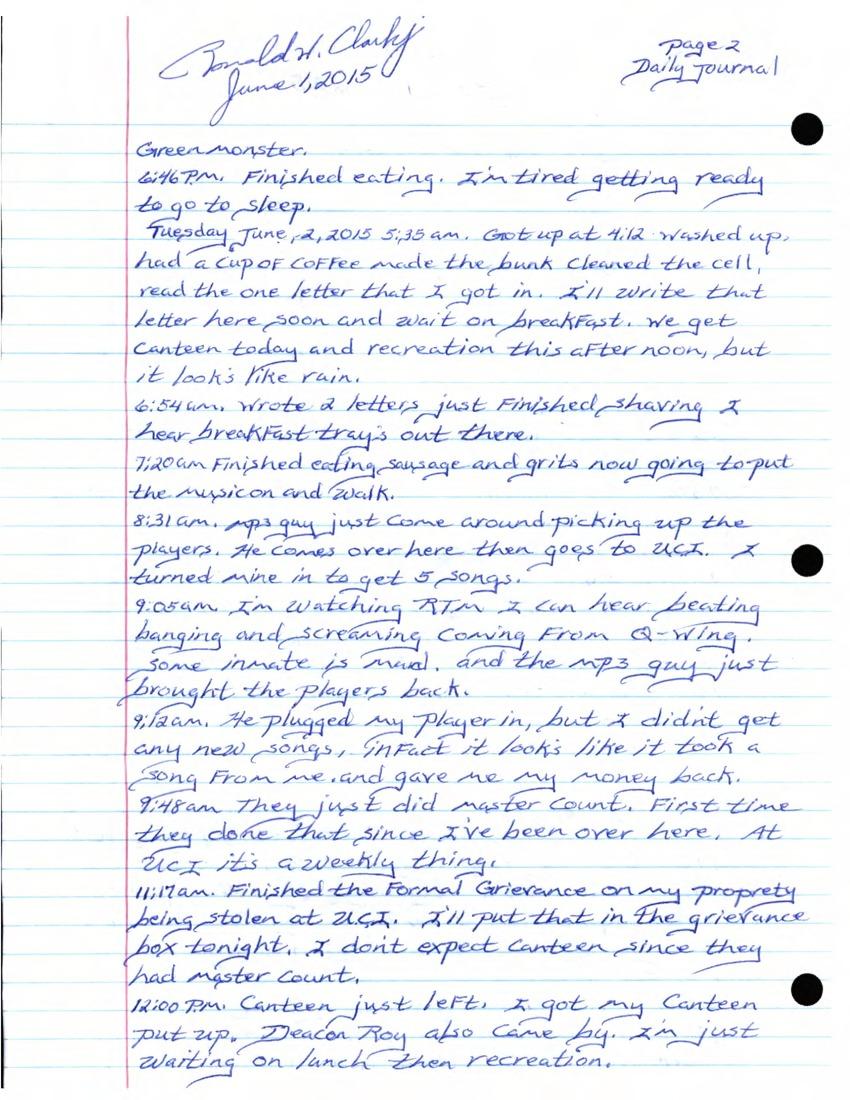 Ronald W. Clark Jr
June 1, 2015
page 2
Daily Journal
Green monster.
6:46 P.M. Finished eating. I'm tired getting ready
to go to sleep.
Tuesday June, 2, 2015 5:35 am. Got up at 4:12 washed up,
had a cup of coffee made the bunk cleaned the cell,
read the one letter that I got in. I'll write that
letter here soon and wait on breakfast. We get
Canteen today and recreation this after noon, but
it look's like rain.
6:54 am. Wrote 2 letters just finished shaving I
hear breakfast tray's out there.
7:20 am Finished eating sausage and grits now going to put
the music on and walk.
8:31 am. mp3 guy just come around picking up the
players. He comes over here then goes to UCI. I
turned mine in to get 5 songs.
9:05 am I'm watching RTM I can hear beating
banging and screaming coming from Q-Wing.
some inmate is mad. and the mp3 guy just
brought the players back.
9:12 am. He plugged my player in, but I didn't get
any new songs, infact it look's like it took a
song from me. and gave me my money back.
9:48 am They just did master count. First time
they done that since I've been over here. At
UCI it's a weekly thing.
11:17 am. Finished the Formal Grievance on my proprety
being stolen at UCI. I'll put that in the grievance
box tonight. I don't expect canteen since they
had master count.
12:00 P.M. Canteen just left. I got my Canteen
put up. Deacon Roy also came by. I'm just
waiting on lunch then recreation.